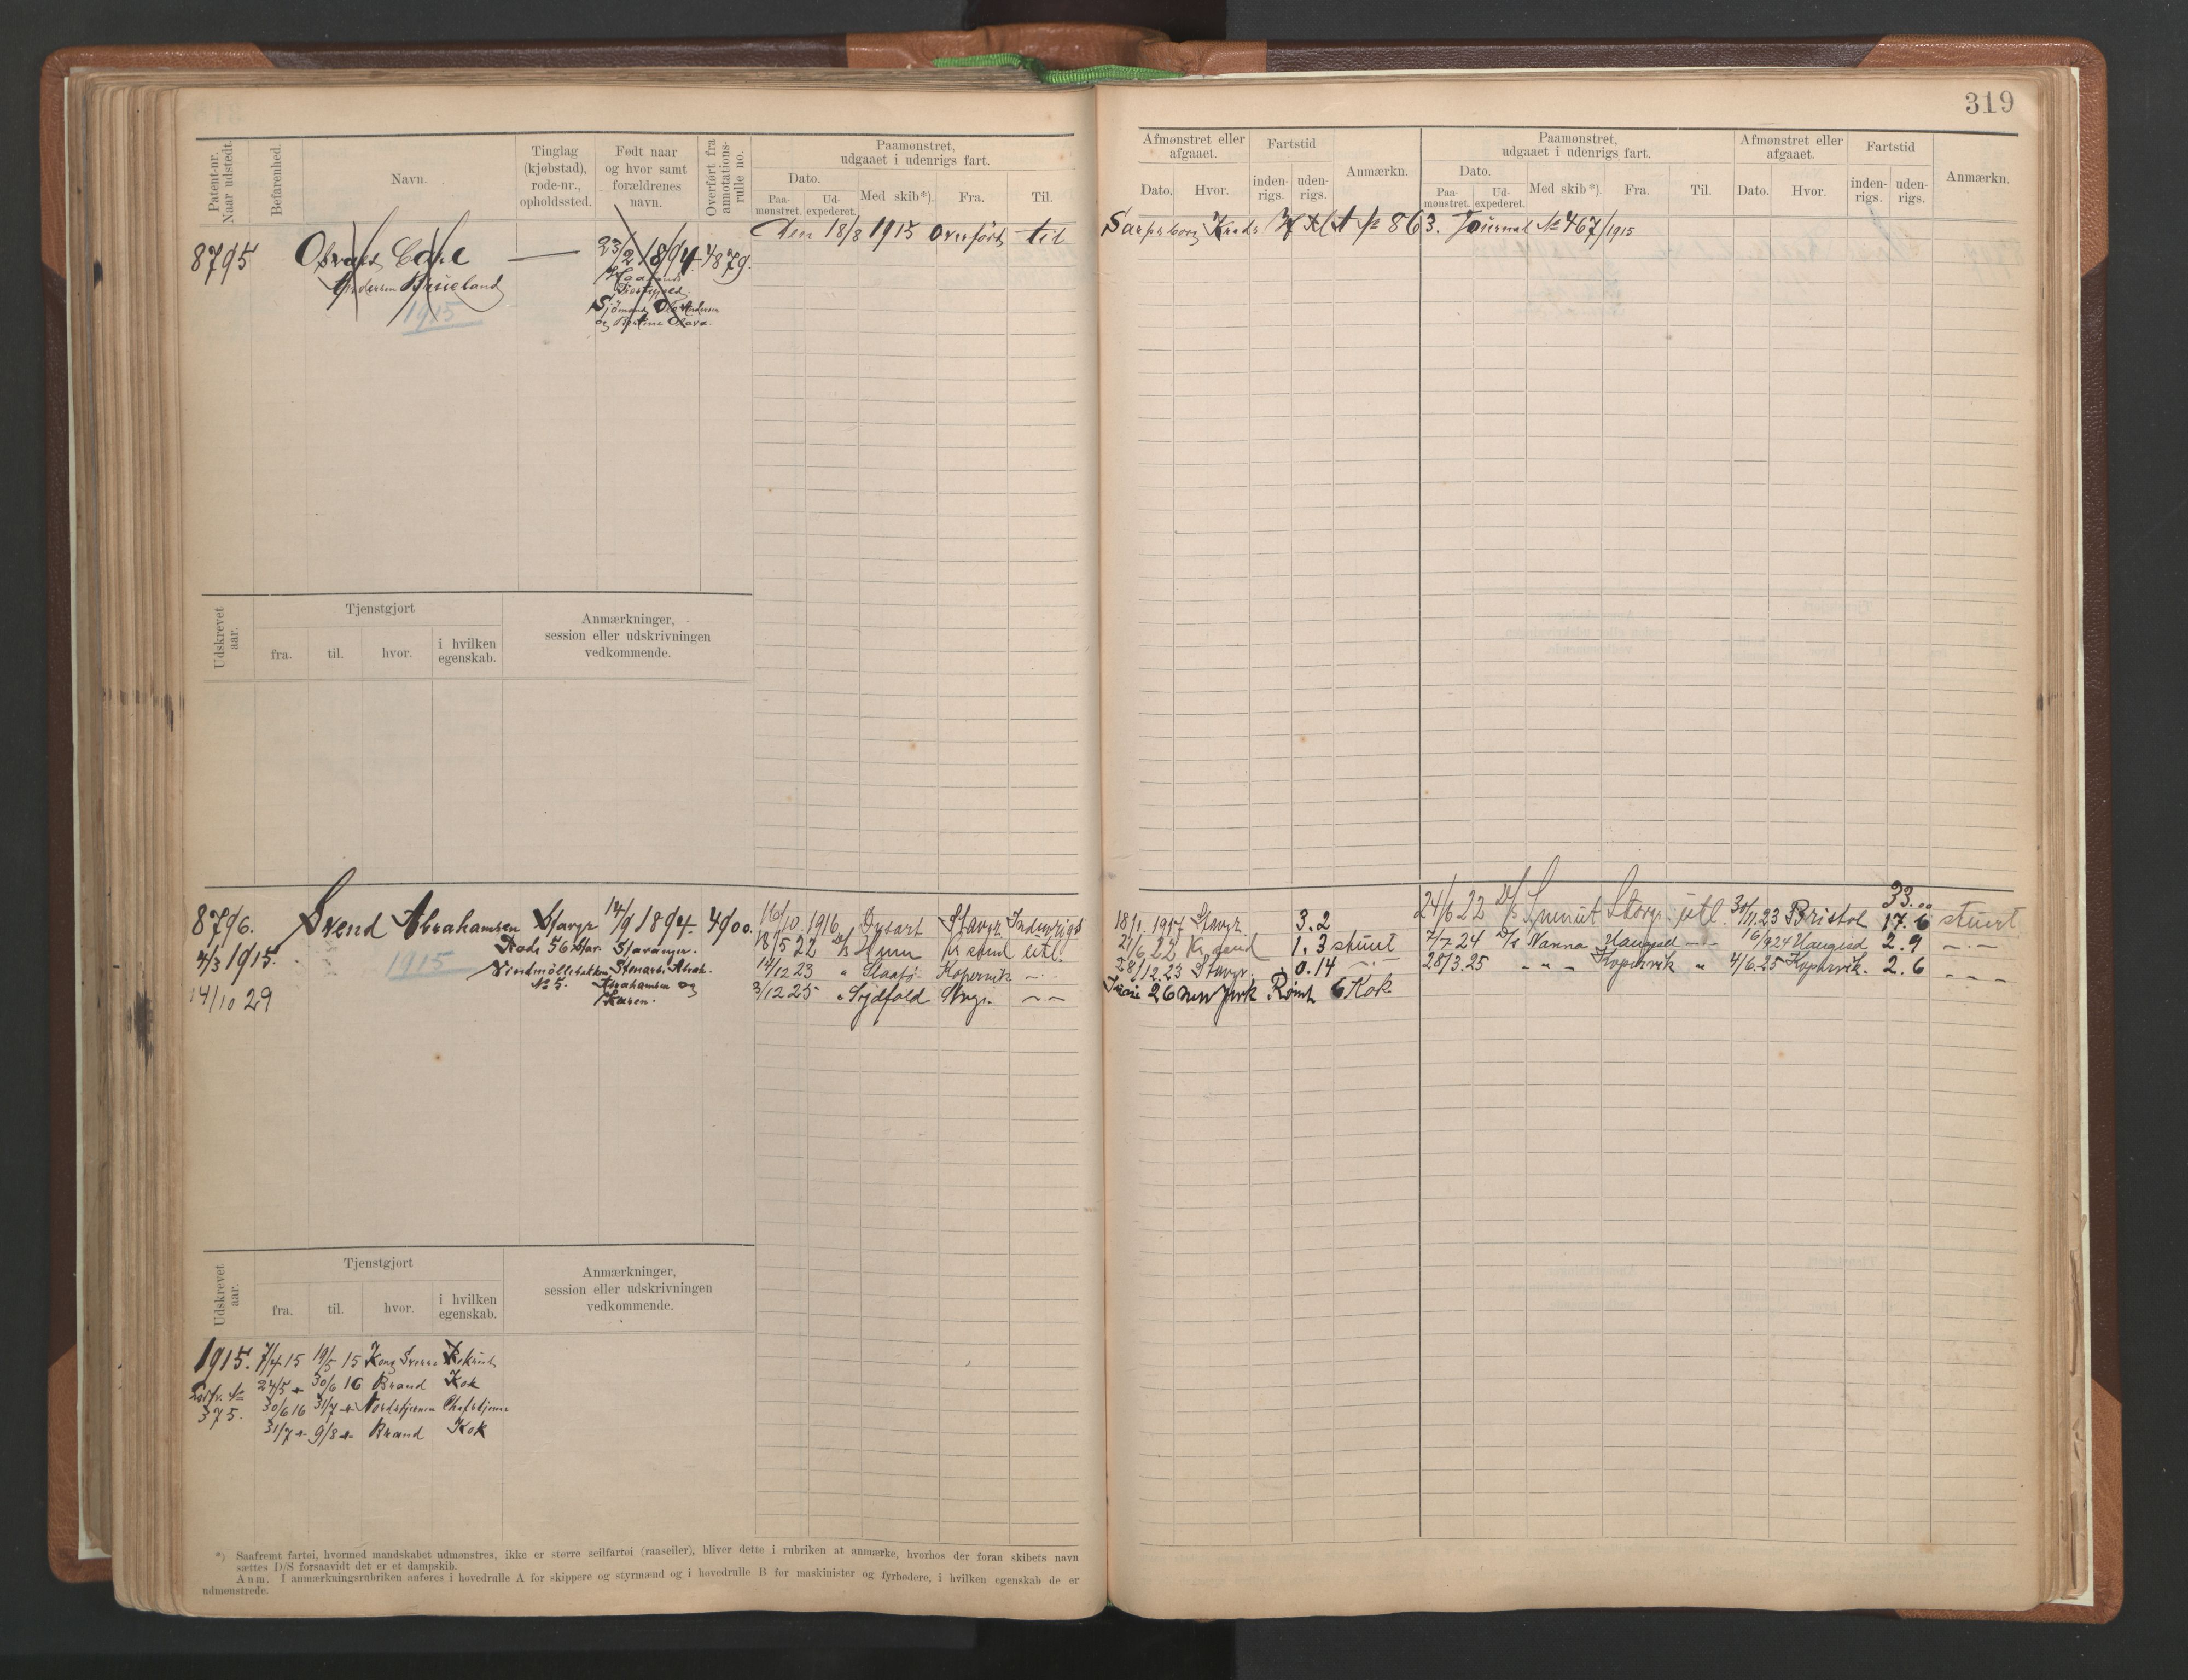 319
Patent-nr. Naar udstedt.
Befarenhed.
Navn.
Tinglag (kjøbstad), rode-nr., opholdssted.
Født naar og hvor samt forældrenes navn.
Overført fra annotations-rulle no.
Paamønstret, udgaaet i udenrigs fart.
Dato.
Paa-mønstret.
Ud-expederet.
Med skib*).
Fra.
Til.
Afmønstret eller afgaaet.
Dato.
Hvor.
Fartstid
inden-rigs.
uden-rigs.
Anmærkn.
Paamønstret, udgaaet i udenrigs fart.
Dato.
Paa-mønstret.
Ud-expederet.
Med skib*).
Fra.
Til.
Afmønstret eller afgaaet.
Dato.
Hvor.
Fartstid
inden-rigs.
uden-rigs.
Anmærkn.
Den 18/8 1915 overført til Sarpsborg Kreds A № 863. Journal № 467/1915
8795
23/2 1894 4879.
Andersen
1915
Sjømand Ole Andersen
og Olava.
Udskrevet aar.
Tjenstgjort
fra.
til.
hvor.
i hvilken egenskab.
Anmærkninger, session eller udskrivningen vedkommende.
8796. Svend Abrahamsen Stavgr 14/9 1894. 4900.
4/3 1915. Rode 56 Stav. Stavanger.
1915
Vindmøllebakken
№ 5. Abrahamsen og
Karen.
14/10 29
16/10 1916 Dysart Stavgr. Indenrigs 18/1. 1917 Stavgr. 3.2
18/5 22 D/S Kr sand utl. 21/6 22 Kr sand 1.3 stuert
14/12 23 " Kopervik 28/12 23 Stavgr. 0.14
3/12 25 " Sydfold Stvgr. 26 New York Rømt 6 Kok
33.00
24/6 22 D/S Stavgr utl. 30/11.23 Bristol 17.6 stuert
7/7 24 D/S Nanna Haugesd 16/9 24 Haugesd 2.9
28/3.25 " " Kopervik " 4/6.25 Kopervik. 2.6
Udskrevet aar.
Tjenstgjort
fra.
til.
hvor.
i hvilken egenskab.
Anmærkninger, session eller udskrivningen vedkommende.
1915. 7/4 15 19/5 15 Kong Sverre Rekrut
24/5 30/6 16 Brand Kok
375. 30/6 16 31/7 Nordstjernen
31/7 9/8 Brand Kok
*) Saafremt fartøi, hvormed mandskabet udmønstres, ikke er større seilfartøi (raaseiler), bliver dette i rubriken at anmærke, hvorhos der foran skibets navn
sættes D/S forsaavidt det er et dampskib.
Anm. I anmærkningsrubriken anføres i hovedrulle A for skippere og styrmænd og i hovedrulle B for maskinister og fyrbødere, i hvilken egenskab de er
udmønstrede.